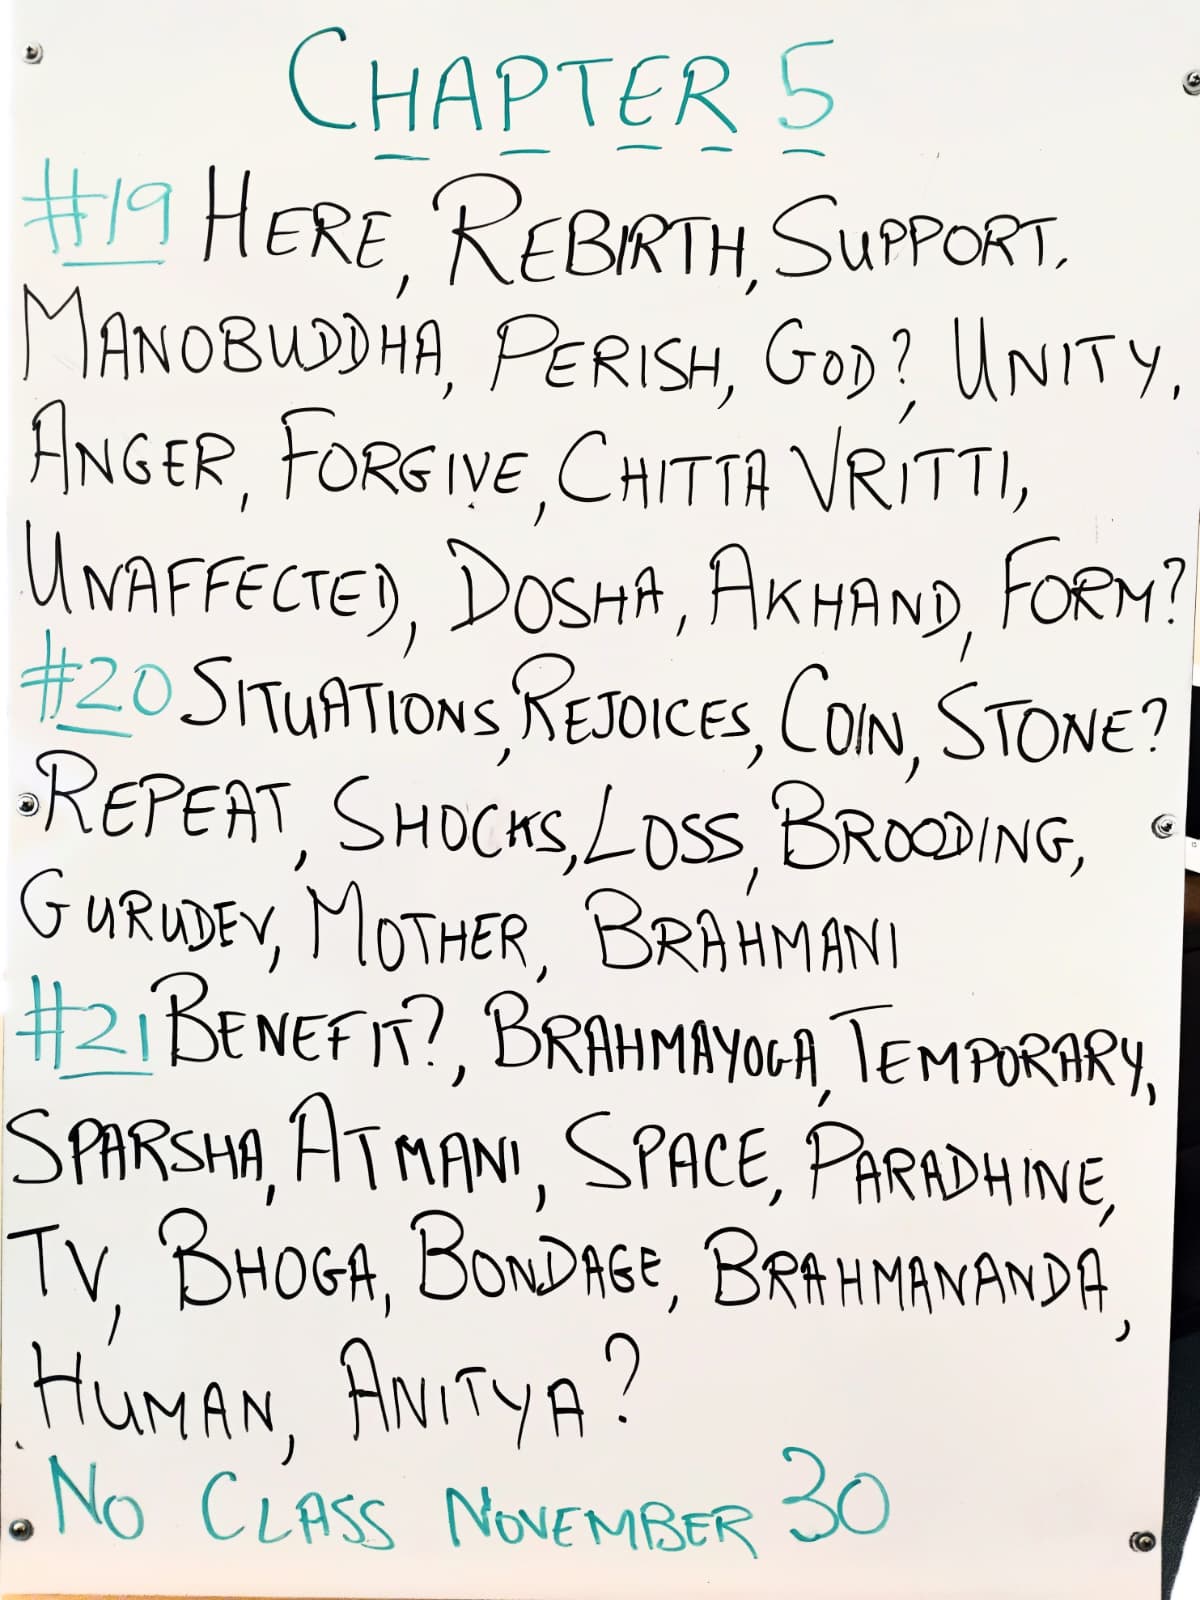 CHAPTER 5
#19 HERE, REBIRTH, SUPPORT,
MANOBUDDHA, PERISH, GOD?, UNITY,
ANGER, FORGIVE, CHITTA VRITTI,
UNAFFECTED, DOSHA, AKHAND, FORM?
#20 SITUATIONS, REJOICES, COIN, STONE?
REPEAT, SHOCKS, LOSS, BROODING,
GURUDEV, MOTHER, BRAHMANI
#21 BENEFIT?, BRAHMAYOGA, TEMPORARY,
SPARSHA, ATMANI, SPACE, PARADHINE,
TV, BHOGA, BONDAGE, BRAHMANANDA,
HUMAN, ANITYA?
NO CLASS NOVEMBER 30